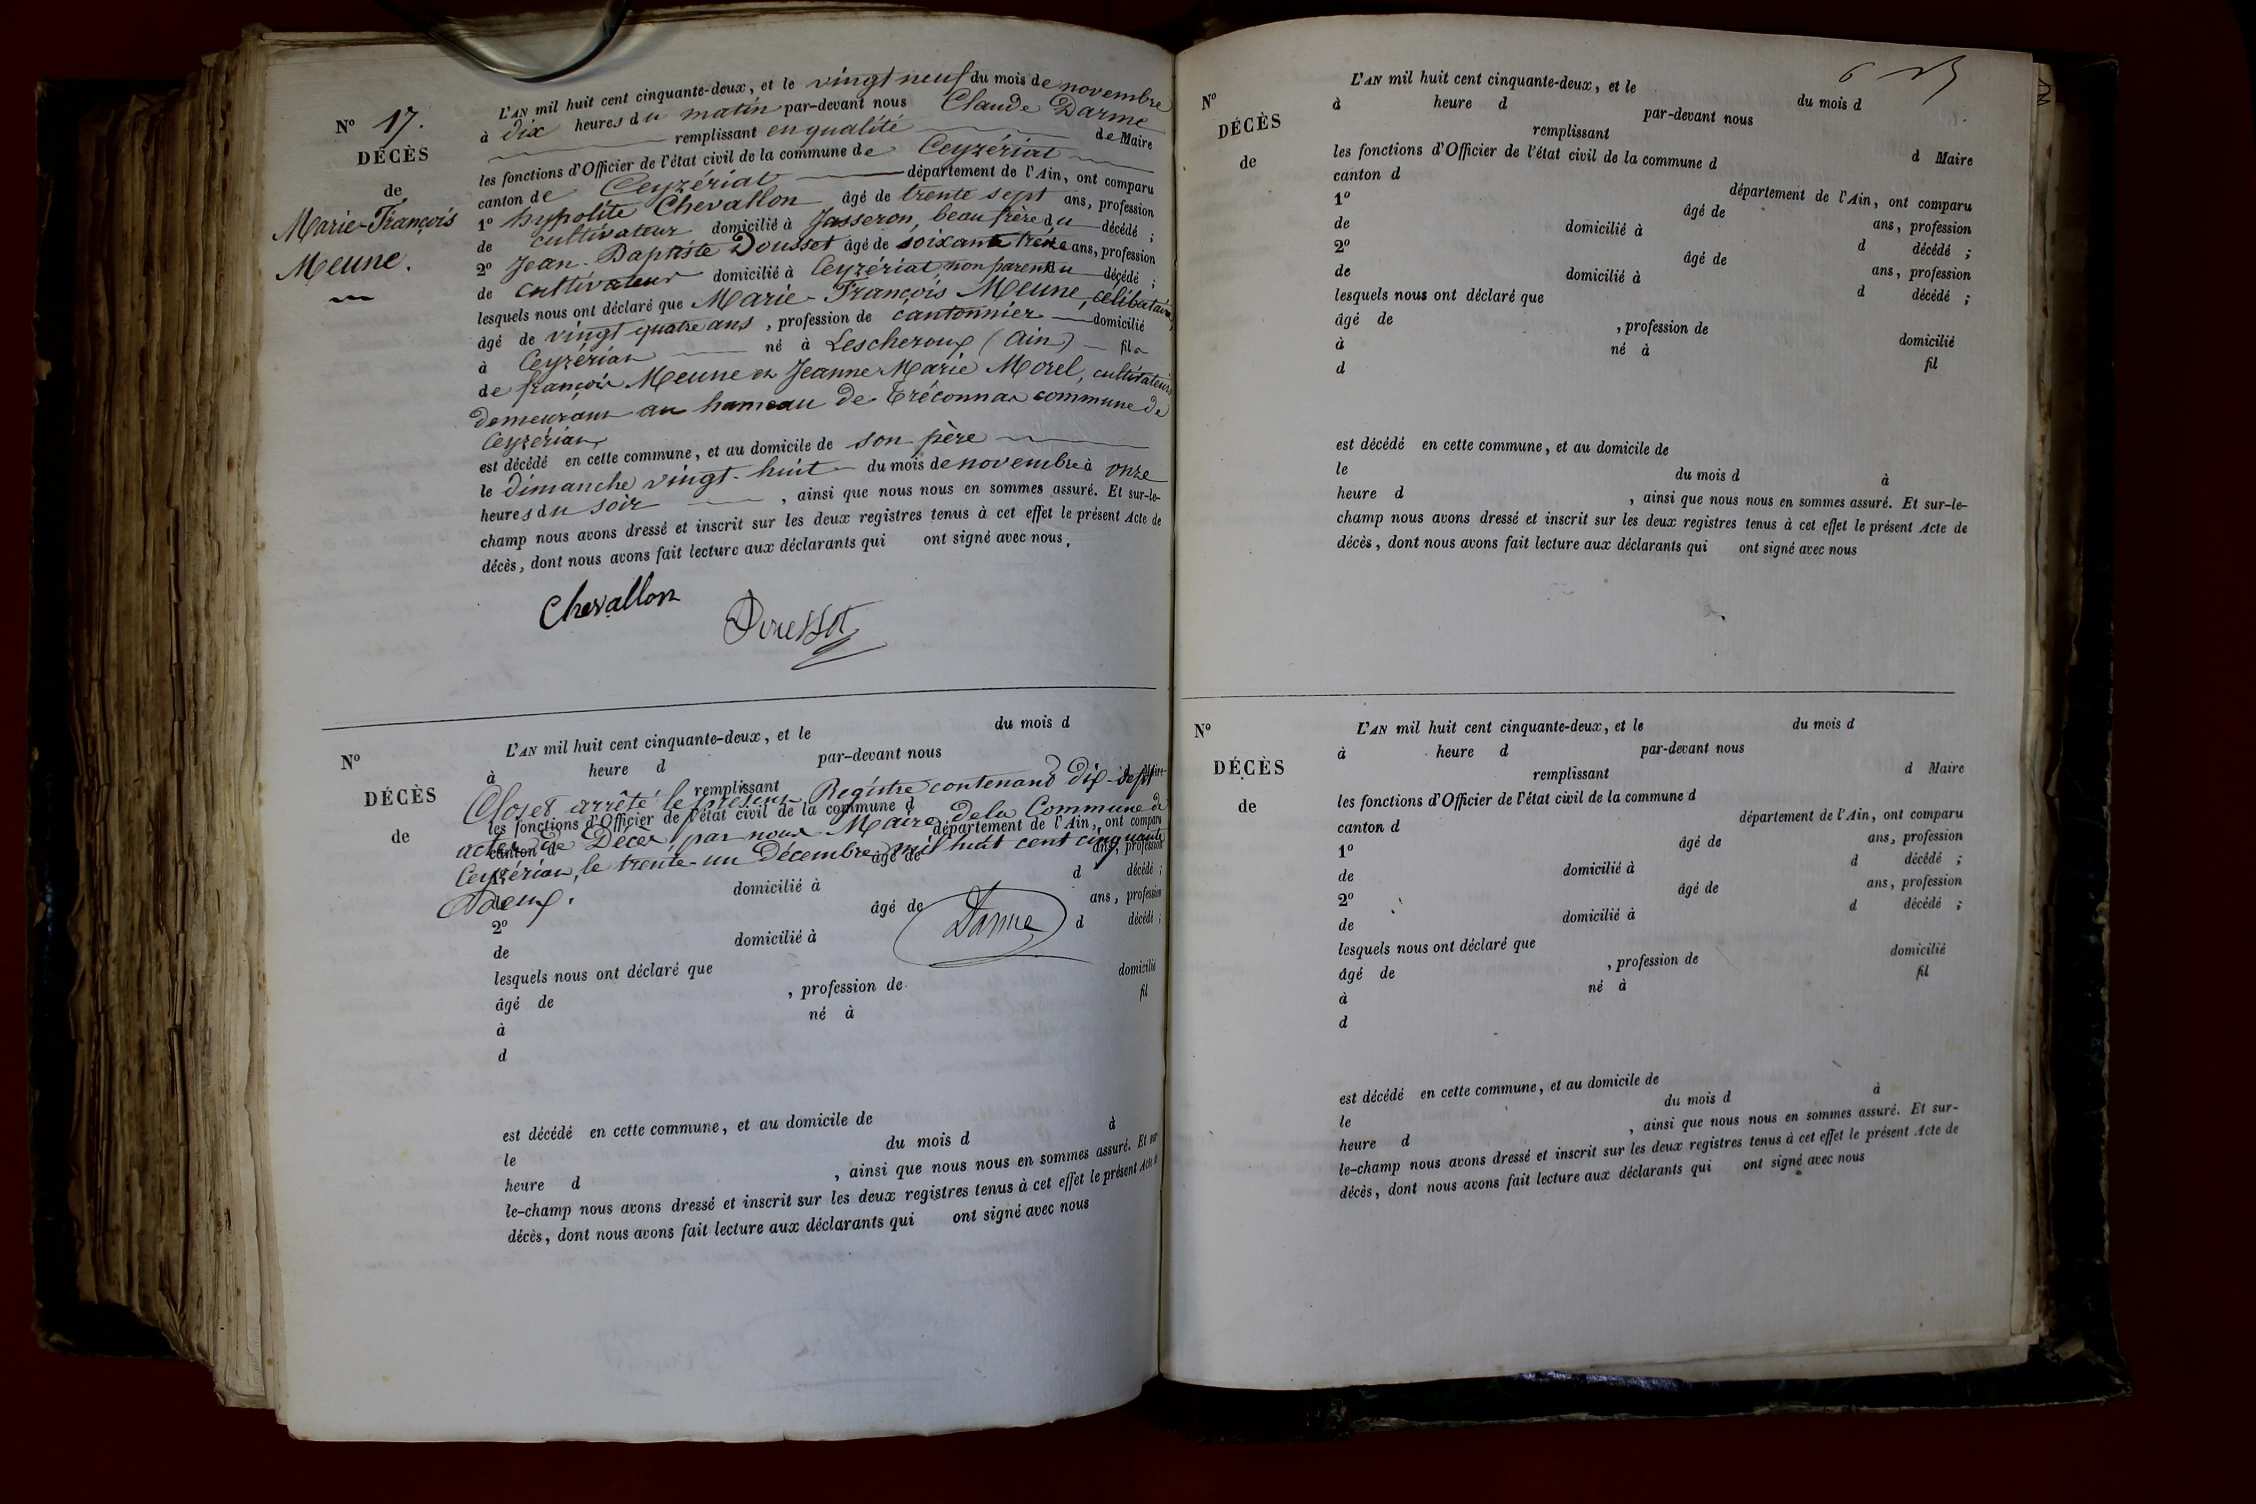 N° 17.
DÉCÈS
de
Marie-François
Meune.
L'AN mil huit cent cinquante-deux, et le vingt neuf du mois de novembre
à dix heures du matin par-devant nous Claude Darme
remplissant en qualité de Maire
les fonctions d'Officier de l'état civil de la commune de Ceyzériat
canton de Ceyzériat département de l'Ain, ont comparu
1° hypolite Chevallon âgé de trente sept ans, profession
de cultivateur domicilié à Jasseron, beau frère du décédé ;
2° Jean-Baptiste Dousset âgé de soixante treize ans, profession
de cultivateur domicilié à Ceyzériat, non parent du décédé ;
lesquels nous ont déclaré que Marie-François Meune, célibataire,
âgé de vingt quatre ans, profession de cantonnier domicilié
à Ceyzériat né à Lescheroux (Ain) fils
de françois Meune et Jeanne Marie Morel, cultivateurs
demeurant au hameau de Tréconnas commune de
Ceyzériat
est décédé en cette commune, et au domicile de son père
le dimanche vingt-huit du mois de novembre à onze
heures du soir , ainsi que nous nous en sommes assuré. Et sur-le-
champ nous avons dressé et inscrit sur les deux registres tenus à cet effet le présent Acte de
décès, dont nous avons fait lecture aux déclarants qui ont signé avec nous.
Chevallon
Dousset
N°
DÉCÈS
de
L'AN mil huit cent cinquante-deux, et le du mois d
à heure d par-devant nous
remplissant d Maire
Clos et arrêté le présent Registre contenant dix-sept
les fonctions d'Officier de l'état civil de la commune d
actes de Décès, par nous Maire de la Commune de
canton d département de l'Ain, ont comparu
Ceyzériat, le trente-un Décembre mil huit cent cinquante
1° âgé de ans, profession
Deux.
de domicilié à d décédé ;
2° âgé de ans, profession
Darme
de domicilié à d décédé ;
lesquels nous ont déclaré que
âgé de , profession de domicilié
à né à fil
d
est décédé en cette commune, et au domicile de
le du mois d à
heure d , ainsi que nous nous en sommes assuré. Et sur
le-champ nous avons dressé et inscrit sur les deux registres tenus à cet effet le présent Acte d
décès, dont nous avons fait lecture aux déclarants qui ont signé avec nous
N°
DÉCÈS
de
L'AN mil huit cent cinquante-deux, et le du mois d
à heure d par-devant nous
remplissant d Maire
les fonctions d'Officier de l'état civil de la commune d
canton d département de l'Ain, ont comparu
1° âgé de ans, profession
de domicilié à d décédé ;
2° âgé de ans, profession
de domicilié à d décédé ;
lesquels nous ont déclaré que
âgé de , profession de domicilié
à né à fil
d
est décédé en cette commune, et au domicile de
le du mois d à
heure d , ainsi que nous nous en sommes assuré. Et sur-le-
champ nous avons dressé et inscrit sur les deux registres tenus à cet effet le présent Acte de
décès, dont nous avons fait lecture aux déclarants qui ont signé avec nous
N°
DÉCÈS
de
L'AN mil huit cent cinquante-deux, et le du mois d
à heure d par-devant nous
remplissant d Maire
les fonctions d'Officier de l'état civil de la commune d
canton d département de l'Ain, ont comparu
1° âgé de ans, profession
de domicilié à d décédé ;
2° âgé de ans, profession
de domicilié à d décédé ;
lesquels nous ont déclaré que
âgé de , profession de domicilié
à né à fil
d
est décédé en cette commune, et au domicile de
le du mois d à
heure d , ainsi que nous nous en sommes assuré. Et sur-
le-champ nous avons dressé et inscrit sur les deux registres tenus à cet effet le présent Acte de
décès, dont nous avons fait lecture aux déclarants qui ont signé avec nous